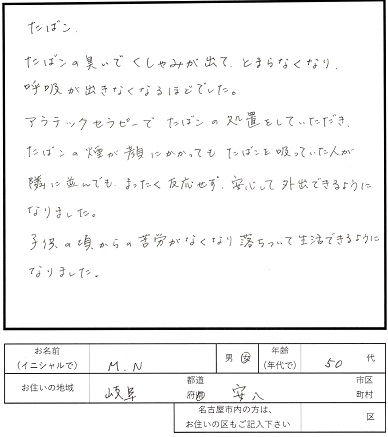 たばこ
たばコの臭いでくしゃみが出て、とまらなくなり、
呼吸が出きなくなるほどでした。
アラテックセラピーでたばコの処置をしていただき、
たばコの煙が顔にかかってもたばコを吸っていた人が
隣に並んでも、まったく反応せず、安心して外出できるように
なりました。
子供の頃からの苦労がなくなり落ちついて生活できるように
なりました。
お名前
（イニシャルで） M.N 男 女 年齢
（年代で） 50 代
お住いの地域 岐阜 都道
府県 安八 市区
町村
名古屋市内の方は、
お住いの区もご記入下さい 区